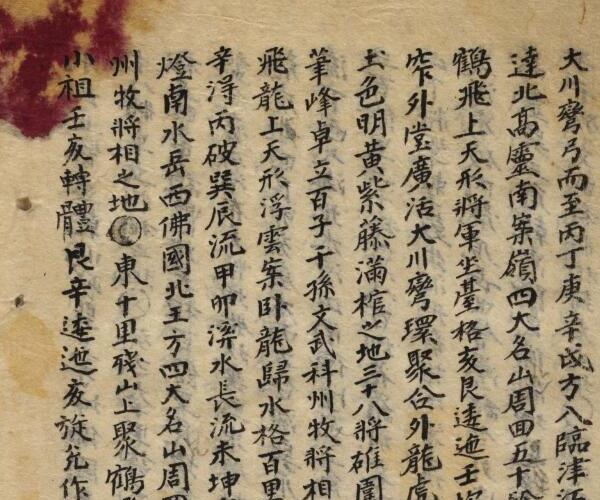 大川彎弓而至丙丁庚辛戌方八臨津
達北高靈南案嶺四大名山周回五十
鶴飛上天形將軍坐臺格亥艮逶迤壬
窄外堂廣活大川彎環聚合外龍虎
土色明黃紫藤滿棺之地三十八將碓圍
筆峰卓立百子千孫文武科州牧將相
飛龍上天形浮雲案卧龍歸水格百里
辛淂丙破巽辰流甲卯湃水長流未坤
燈南水岳西佛國北王方四大名山周回
州牧將相之地 東十里殘山上聚鶴
小祖壬亥轉體艮辛逶迤亥旋兌作